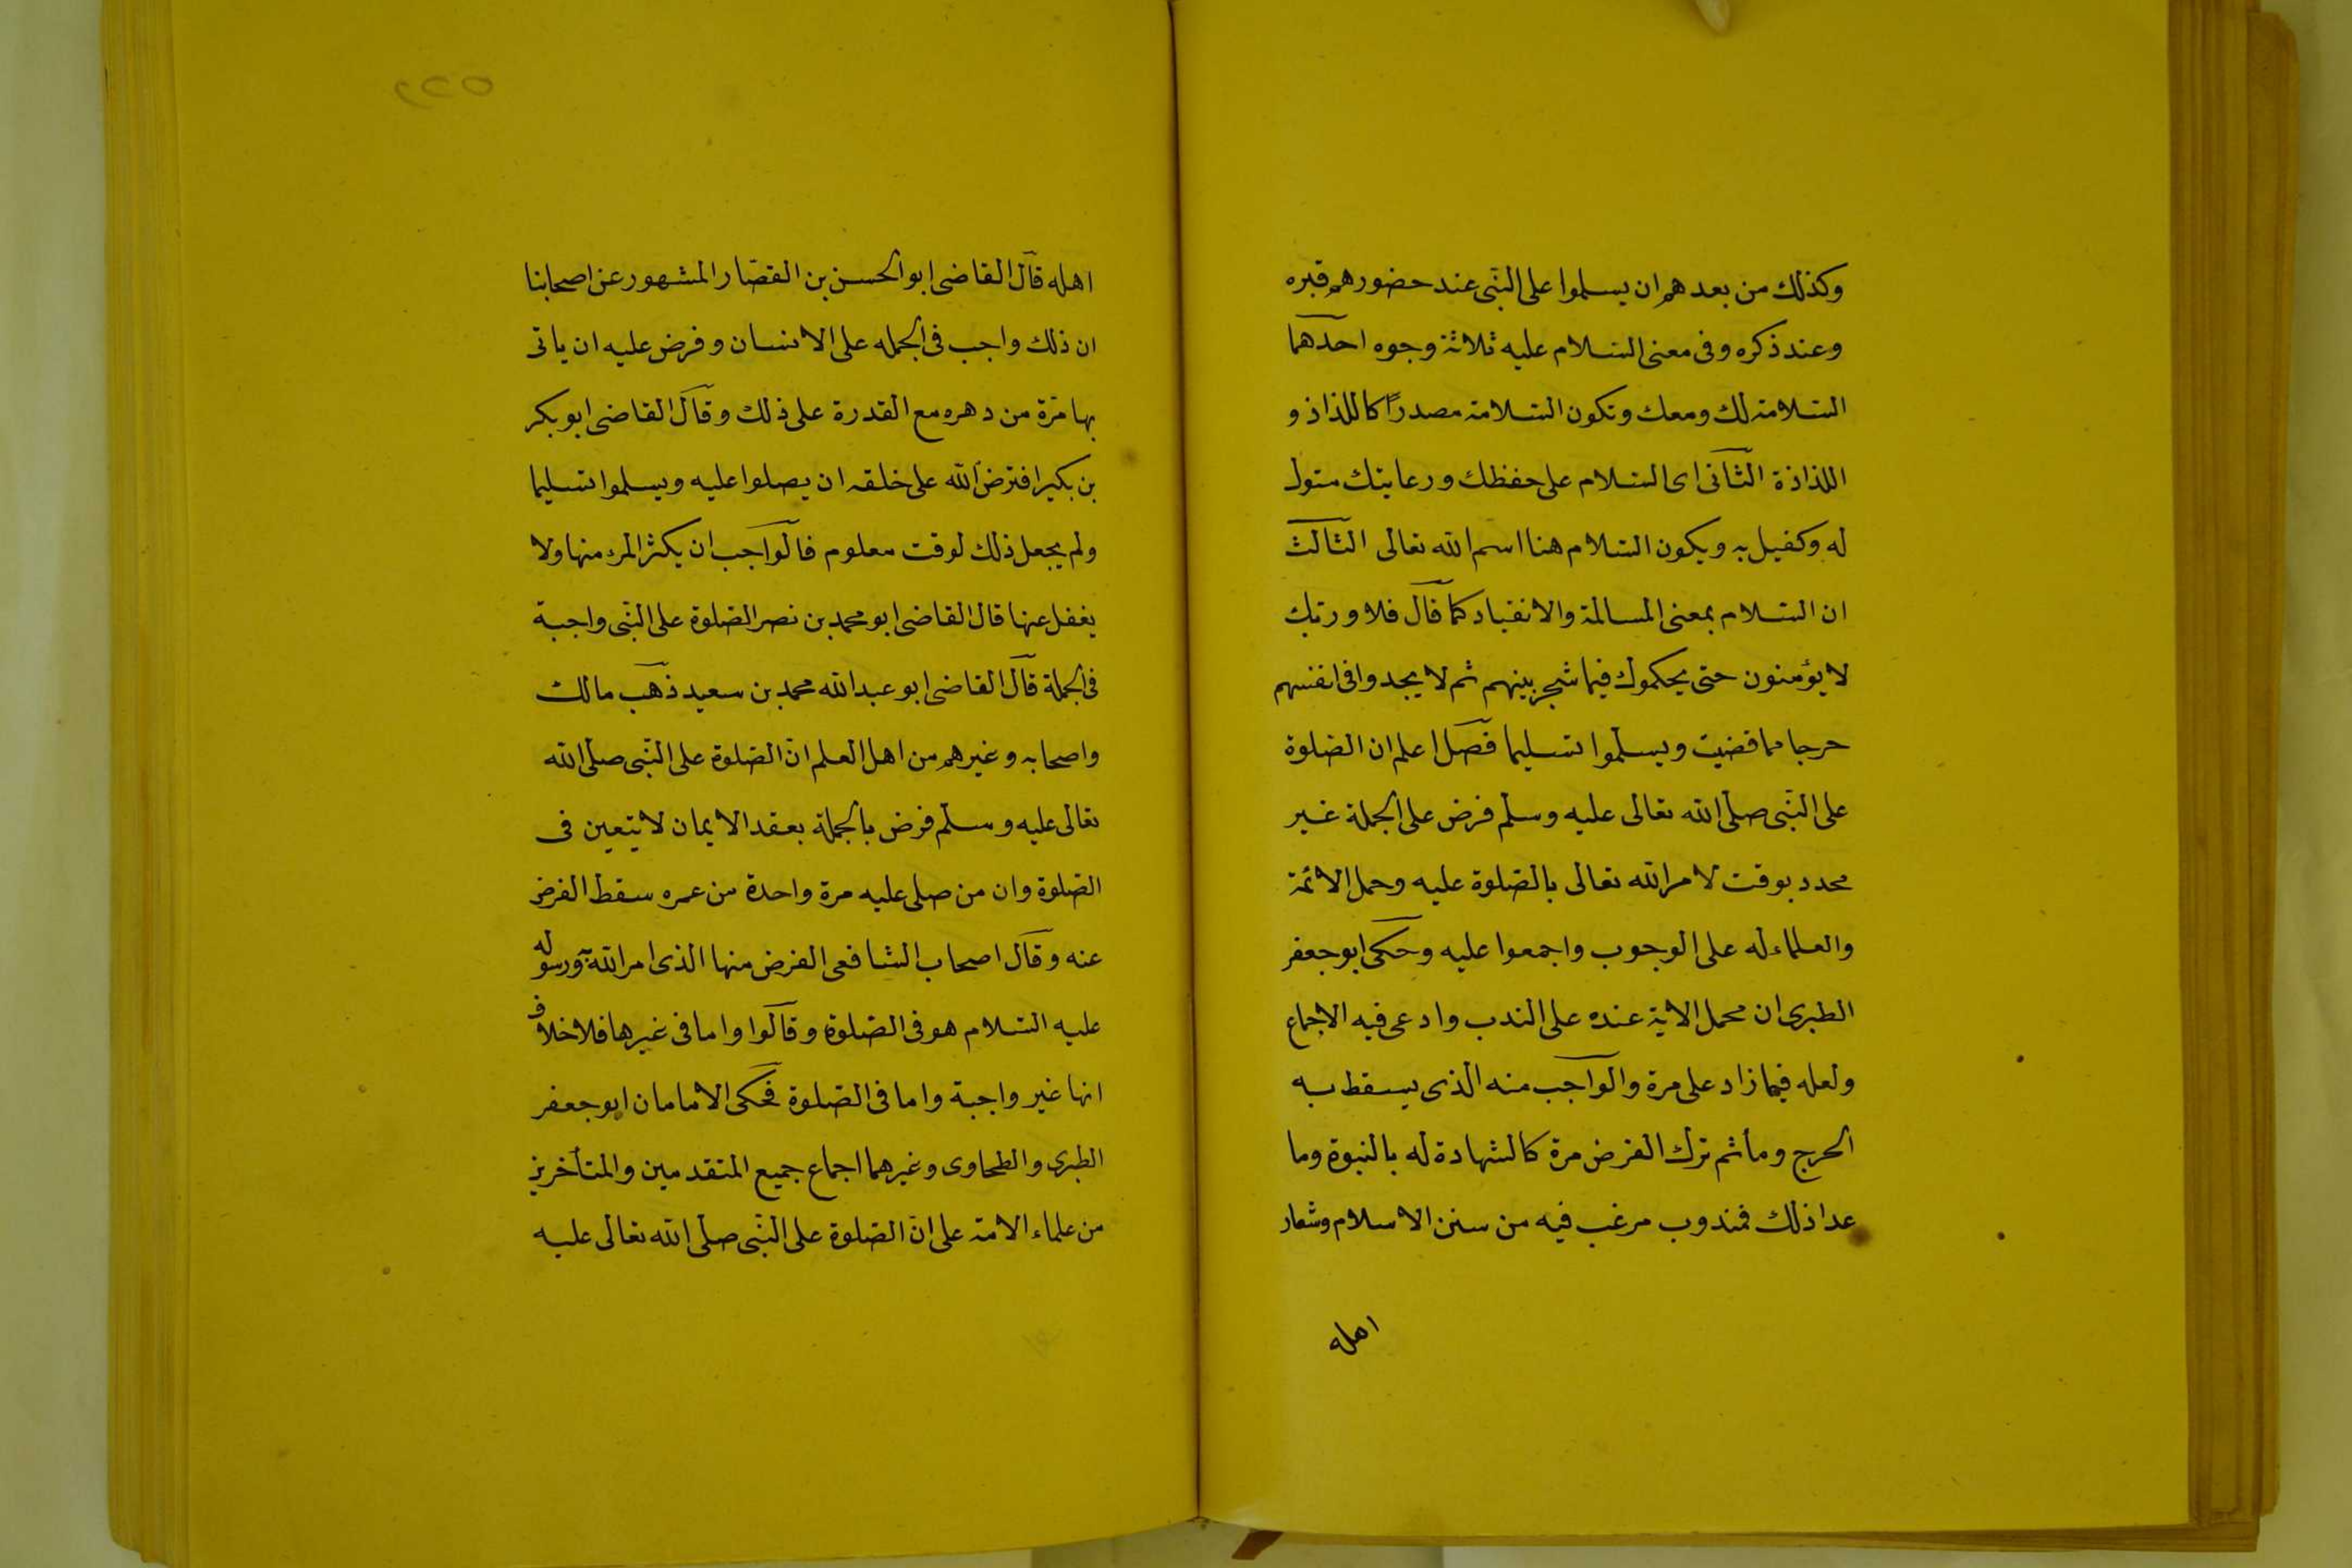 وكذلك من بعدهم ان يسلموا على النبى عند حضورهم قبره
وعند ذكره وفى معنى السلام عليه ثلاثة وجوه احدهما
السلامة لك ومعك وتكون السلامة مصدرًا كاللذاذ و
اللذاذة الثانى اى السلام على حفظك ورعايتك متول
له وكفيل به ويكون السلام هنا اسم الله تعالى الثالث
ان السلام بمعنى المسالمة والانقياد كما قال فلا وربك
لا يؤمنون حتى يحكموك فيما شجر بينهم ثم لا يجدوا فى انفسهم
حرجا مما قضيت ويسلموا تسليما فصل اعلم ان الصلوة
على النبى صلى الله تعالى عليه وسلم فرض على الجملة غير
محدد بوقت لامر الله تعالى بالصلوة عليه وحمل الائمة
والعلماء له على الوجوب واجمعوا عليه وحكى ابو جعفر
الطبرى ان محمل الاية عنده على الندب وادعى فيه الاجماع
ولعله فيما زاد على مرة والواجب منه الذى يسقط به
الحرج ومأثم ترك الفرض مرة كالشهادة له بالنبوة وما
عدا ذلك فمندوب مرغب فيه من سنن الاسلام وشعار
اهله
٥٢٢
اهله قال القاضى ابو الحسن بن القصار المشهور عن اصحابنا
ان ذلك واجب فى الجمله على الانسان وفرض عليه ان ياتى
بها مرة من دهره مع القدرة على ذلك وقال القاضى ابو بكر
بن بكير افترض الله على خلقه ان يصلوا عليه ويسلموا تسليما
ولم يجعل ذلك لوقت معلوم فالواجب ان يكثر المرء منها ولا
يغفل عنها قال القاضى ابو محمد بن نصر الصلوة على النبى واجبة
فى الجملة قال القاضى ابو عبد الله محمد بن سعيد ذهب مالك
واصحابه وغيرهم من اهل العلم انّ الصلوة على النبى صلى الله
تعالى عليه وسلم فرض بالجملة بعقد الايمان لا يتعين فى
الصلوة وان من صلى عليه مرة واحدة من عمره سقط الفرض
عنه وقال اصحاب الشافعى الفرض منها الذى امر الله به ورسوله
عليه السلام هو فى الصلوة وقالوا واما فى غيرها فلا خلاف
انها غير واجبة واما فى الصلوة فحكى الامامان ابو جعفر
الطبرى والطحاوى وغيرهما اجماع جميع المتقدمين والمتأخرين
من علماء الامة على انّ الصلوة على النبى صلى الله تعالى عليه